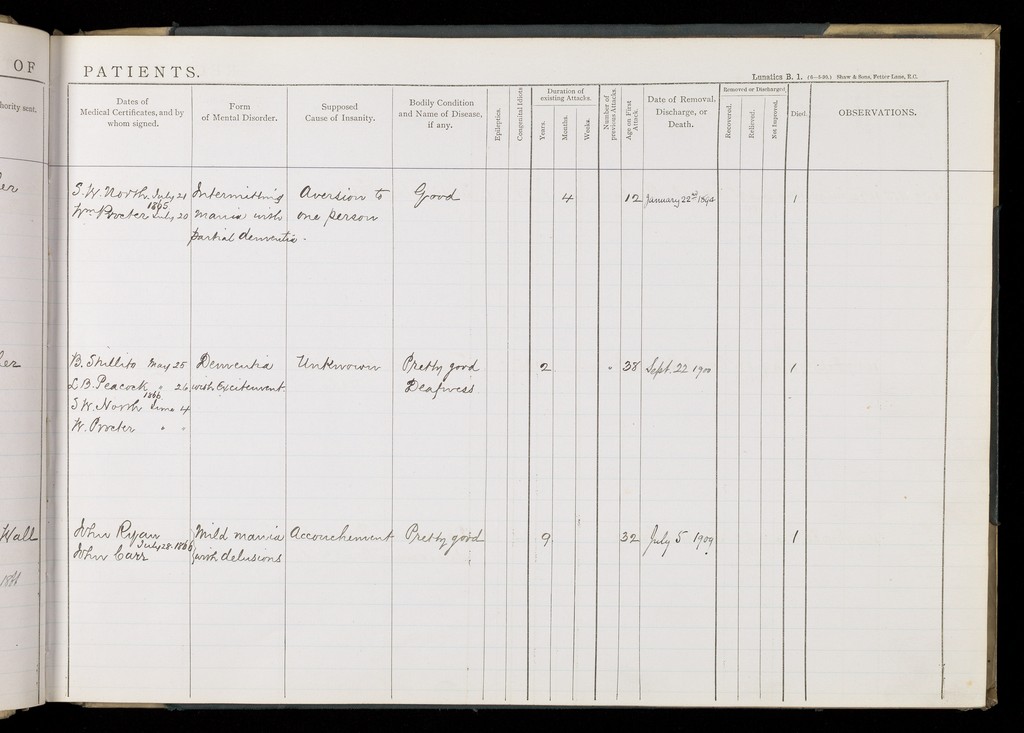 OF
PATIENTS.
Lunatics B. 1. (8—5-96.) Shaw & Sons, Fetter Lane, E.C.
hority sent.
Dates of
Medical Certificates, and by
whom signed.
Form
of Mental Disorder.
Supposed
Cause of Insanity.
Bodily Condition
and Name of Disease,
if any.
Epileptics.
Congenital Idiots
Duration of
existing Attacks.
Years.
Months.
Weeks.
Number of
previous Attacks.
Age on First
Attack.
Date of Removal,
Discharge, or
Death.
Removed or Discharged.
Recovered.
Relieved.
Not Improved.
Died.
OBSERVATIONS.
S. W. North. July 21 Intermitting Aversion to Good 4 12 January 22nd 1894 1
1865
Wm Procter July 20 mania with one person
partial dementia.
B. Shillito May 25 Dementia Unknown Pretty good 2 " 38 Sept. 22 1900 1
L B. Peacock " 26 with Excitement. Deafness
1866
S W. North June 4
W. Procter " "
Wall
John Ryan Mild mania Accouchement Pretty good 9 32 July 5 1909 1
July 28. 1866
John Carr with delusions